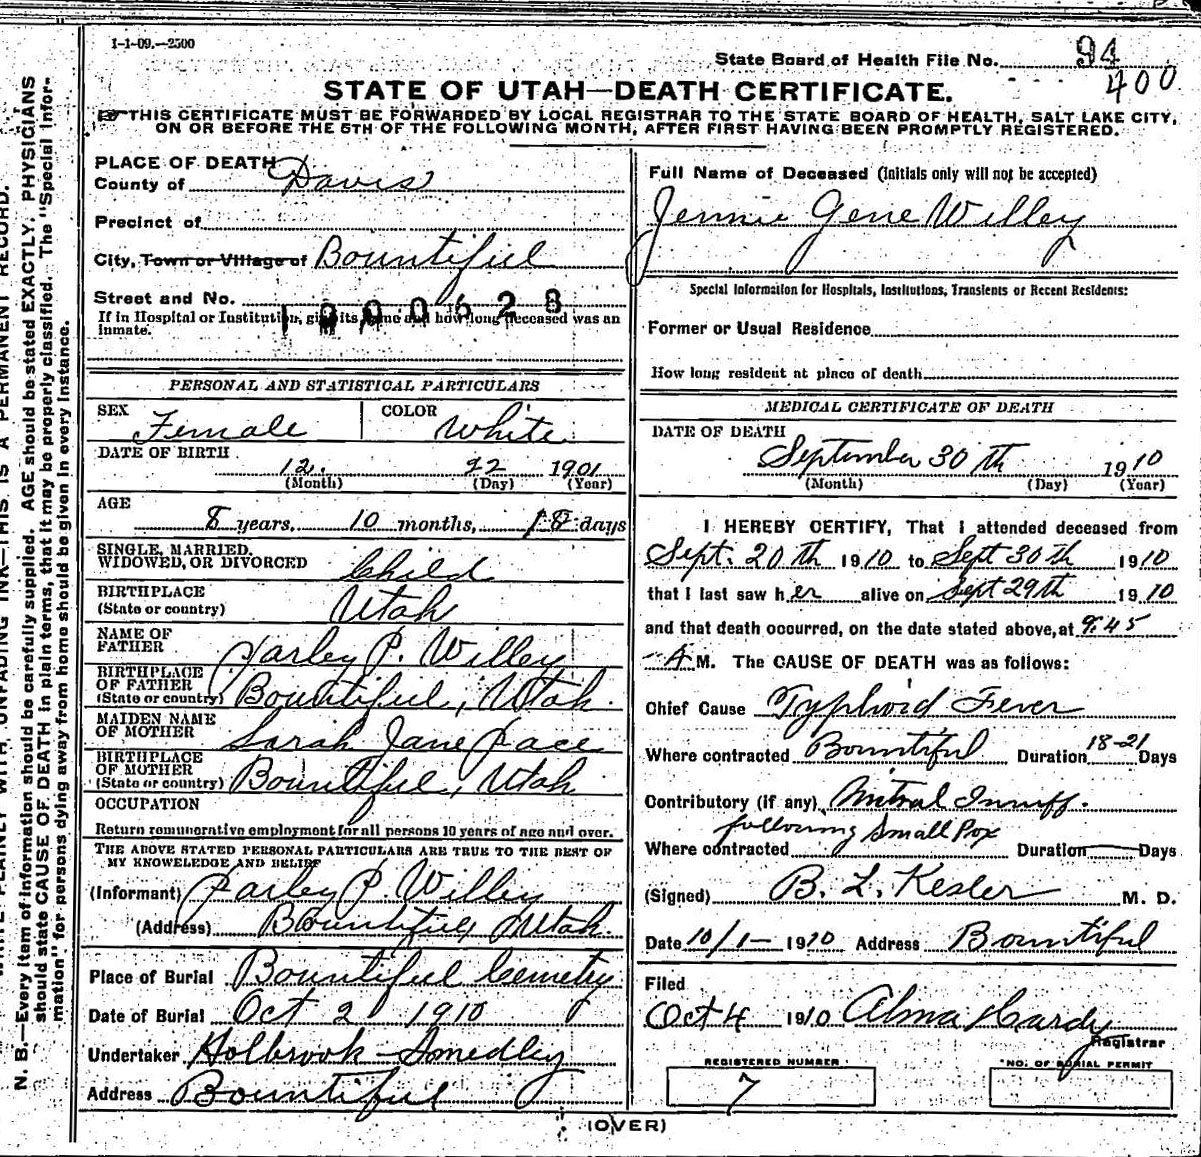 1-1-09.—2500
State Board of Health File No. 94
400
STATE OF UTAH—DEATH CERTIFICATE.
THIS CERTIFICATE MUST BE FORWARDED BY LOCAL REGISTRAR TO THE STATE BOARD OF HEALTH, SALT LAKE CITY,
ON OR BEFORE THE 5TH OF THE FOLLOWING MONTH, AFTER FIRST HAVING BEEN PROMPTLY REGISTERED.
PLACE OF DEATH
County of Davis
Precinct of
City, Town or Village of Bountiful
Street and No.
If in Hospital or Institution, give its name and how long deceased was an
inmate.
PERSONAL AND STATISTICAL PARTICULARS
SEX Female
COLOR White
DATE OF BIRTH
12. 22 1901
(Month) (Day) (Year)
AGE
8 years, 10 months, days
SINGLE, MARRIED,
WIDOWED, OR DIVORCED Child
BIRTHPLACE
(State or country) Utah
NAME OF
FATHER Parley P. Willey
BIRTHPLACE
OF FATHER
(State or country) Bountiful, Utah.
MAIDEN NAME
OF MOTHER Sarah Jane Pace
BIRTHPLACE
OF MOTHER
(State or country) Bountiful, Utah
OCCUPATION
Return remunerative employment for all persons 10 years of age and over.
THE ABOVE STATED PERSONAL PARTICULARS ARE TRUE TO THE BEST OF
MY KNOWELEDGE AND BELIEF
(Informant) Parley P. Willey
(Address) Bountiful, Utah.
Place of Burial Bountiful Cemetry
Date of Burial Oct 2 1910
Undertaker Holbrook-Smedley
Address Bountiful
Full Name of Deceased (Initials only will not be accepted)
Jennie Gene Willey
Special Information for Hospitals, Institutions, Transients or Recent Residents:
Former or Usual Residence
How long resident at place of death
MEDICAL CERTIFICATE OF DEATH
DATE OF DEATH
September 30th 1910
(Month) (Day) (Year)
I HEREBY CERTIFY, That I attended deceased from
Sept. 20th 1910 to Sept 30th 1910
that I last saw her alive on Sept 29th 1910
and that death occurred, on the date stated above, at 9:45
A M. The CAUSE OF DEATH was as follows:
Chief Cause Typhoid Fever
Where contracted Bountiful Duration 18-21 Days
Contributory (if any) Mitral Insuff.
following Small Pox
Where contracted Duration Days
(Signed) B. L. Kesler M. D.
Date 10/1- 1910 Address Bountiful
Filed
Oct 4 1910 Alma Hardy
Registrar
REGISTERED NUMBER
7
NO. OF BURIAL PERMIT
(OVER)
N. B.—Every item of information should be carefully supplied. AGE should be stated EXACTLY. PHYSICIANS
should state CAUSE OF DEATH in plain terms, that it may be properly classified. The "Special Infor-
mation" for persons dying away from home should be given in every instance.
WRITE PLAINLY WITH UNFADING INK—THIS IS A PERMANENT RECORD.